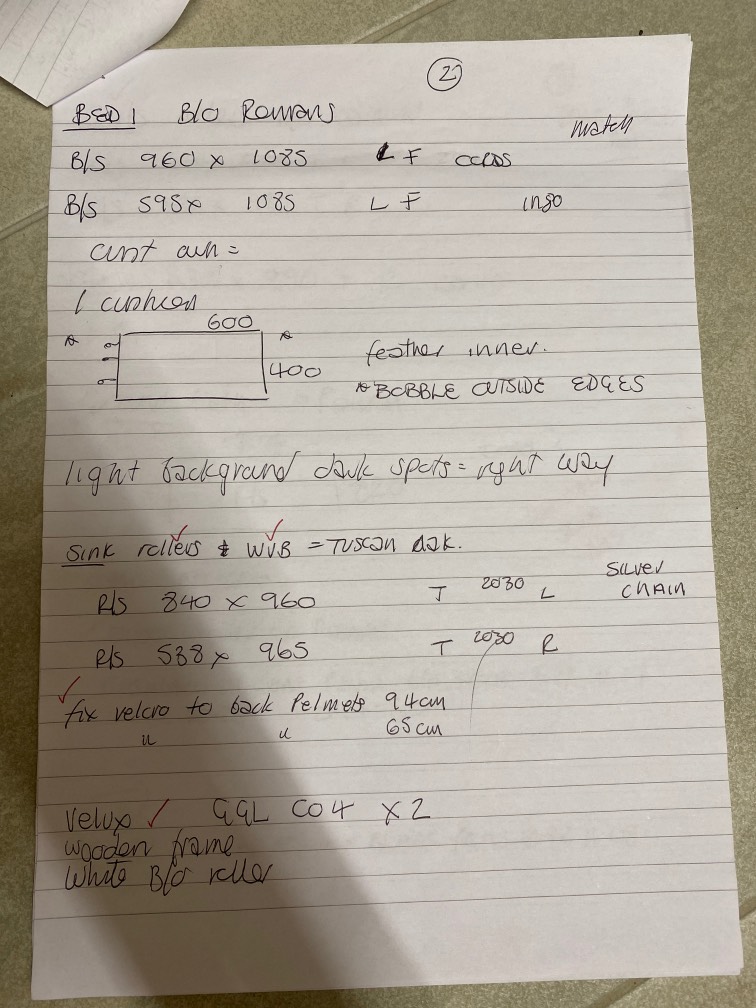 2
BED 1 B/O Romans
match
B/S 960 x 1085 L F cords
B/S 595x 1085 L F
cust own =
1 cushion
600
400
feather inner.
* BOBBLE OUTSIDE EDGES
light background dark spots = right way
Sink rollers & WVB = Tuscan oak.
R/S 840 x 960 T 2030 L SILVER CHAIN
R/S 588 x 965 T 2030 R
fix velcro to back Pelmets 94cm
" " 65cm
Velux GGL CO4 x2
wooden frame
White B/O roller